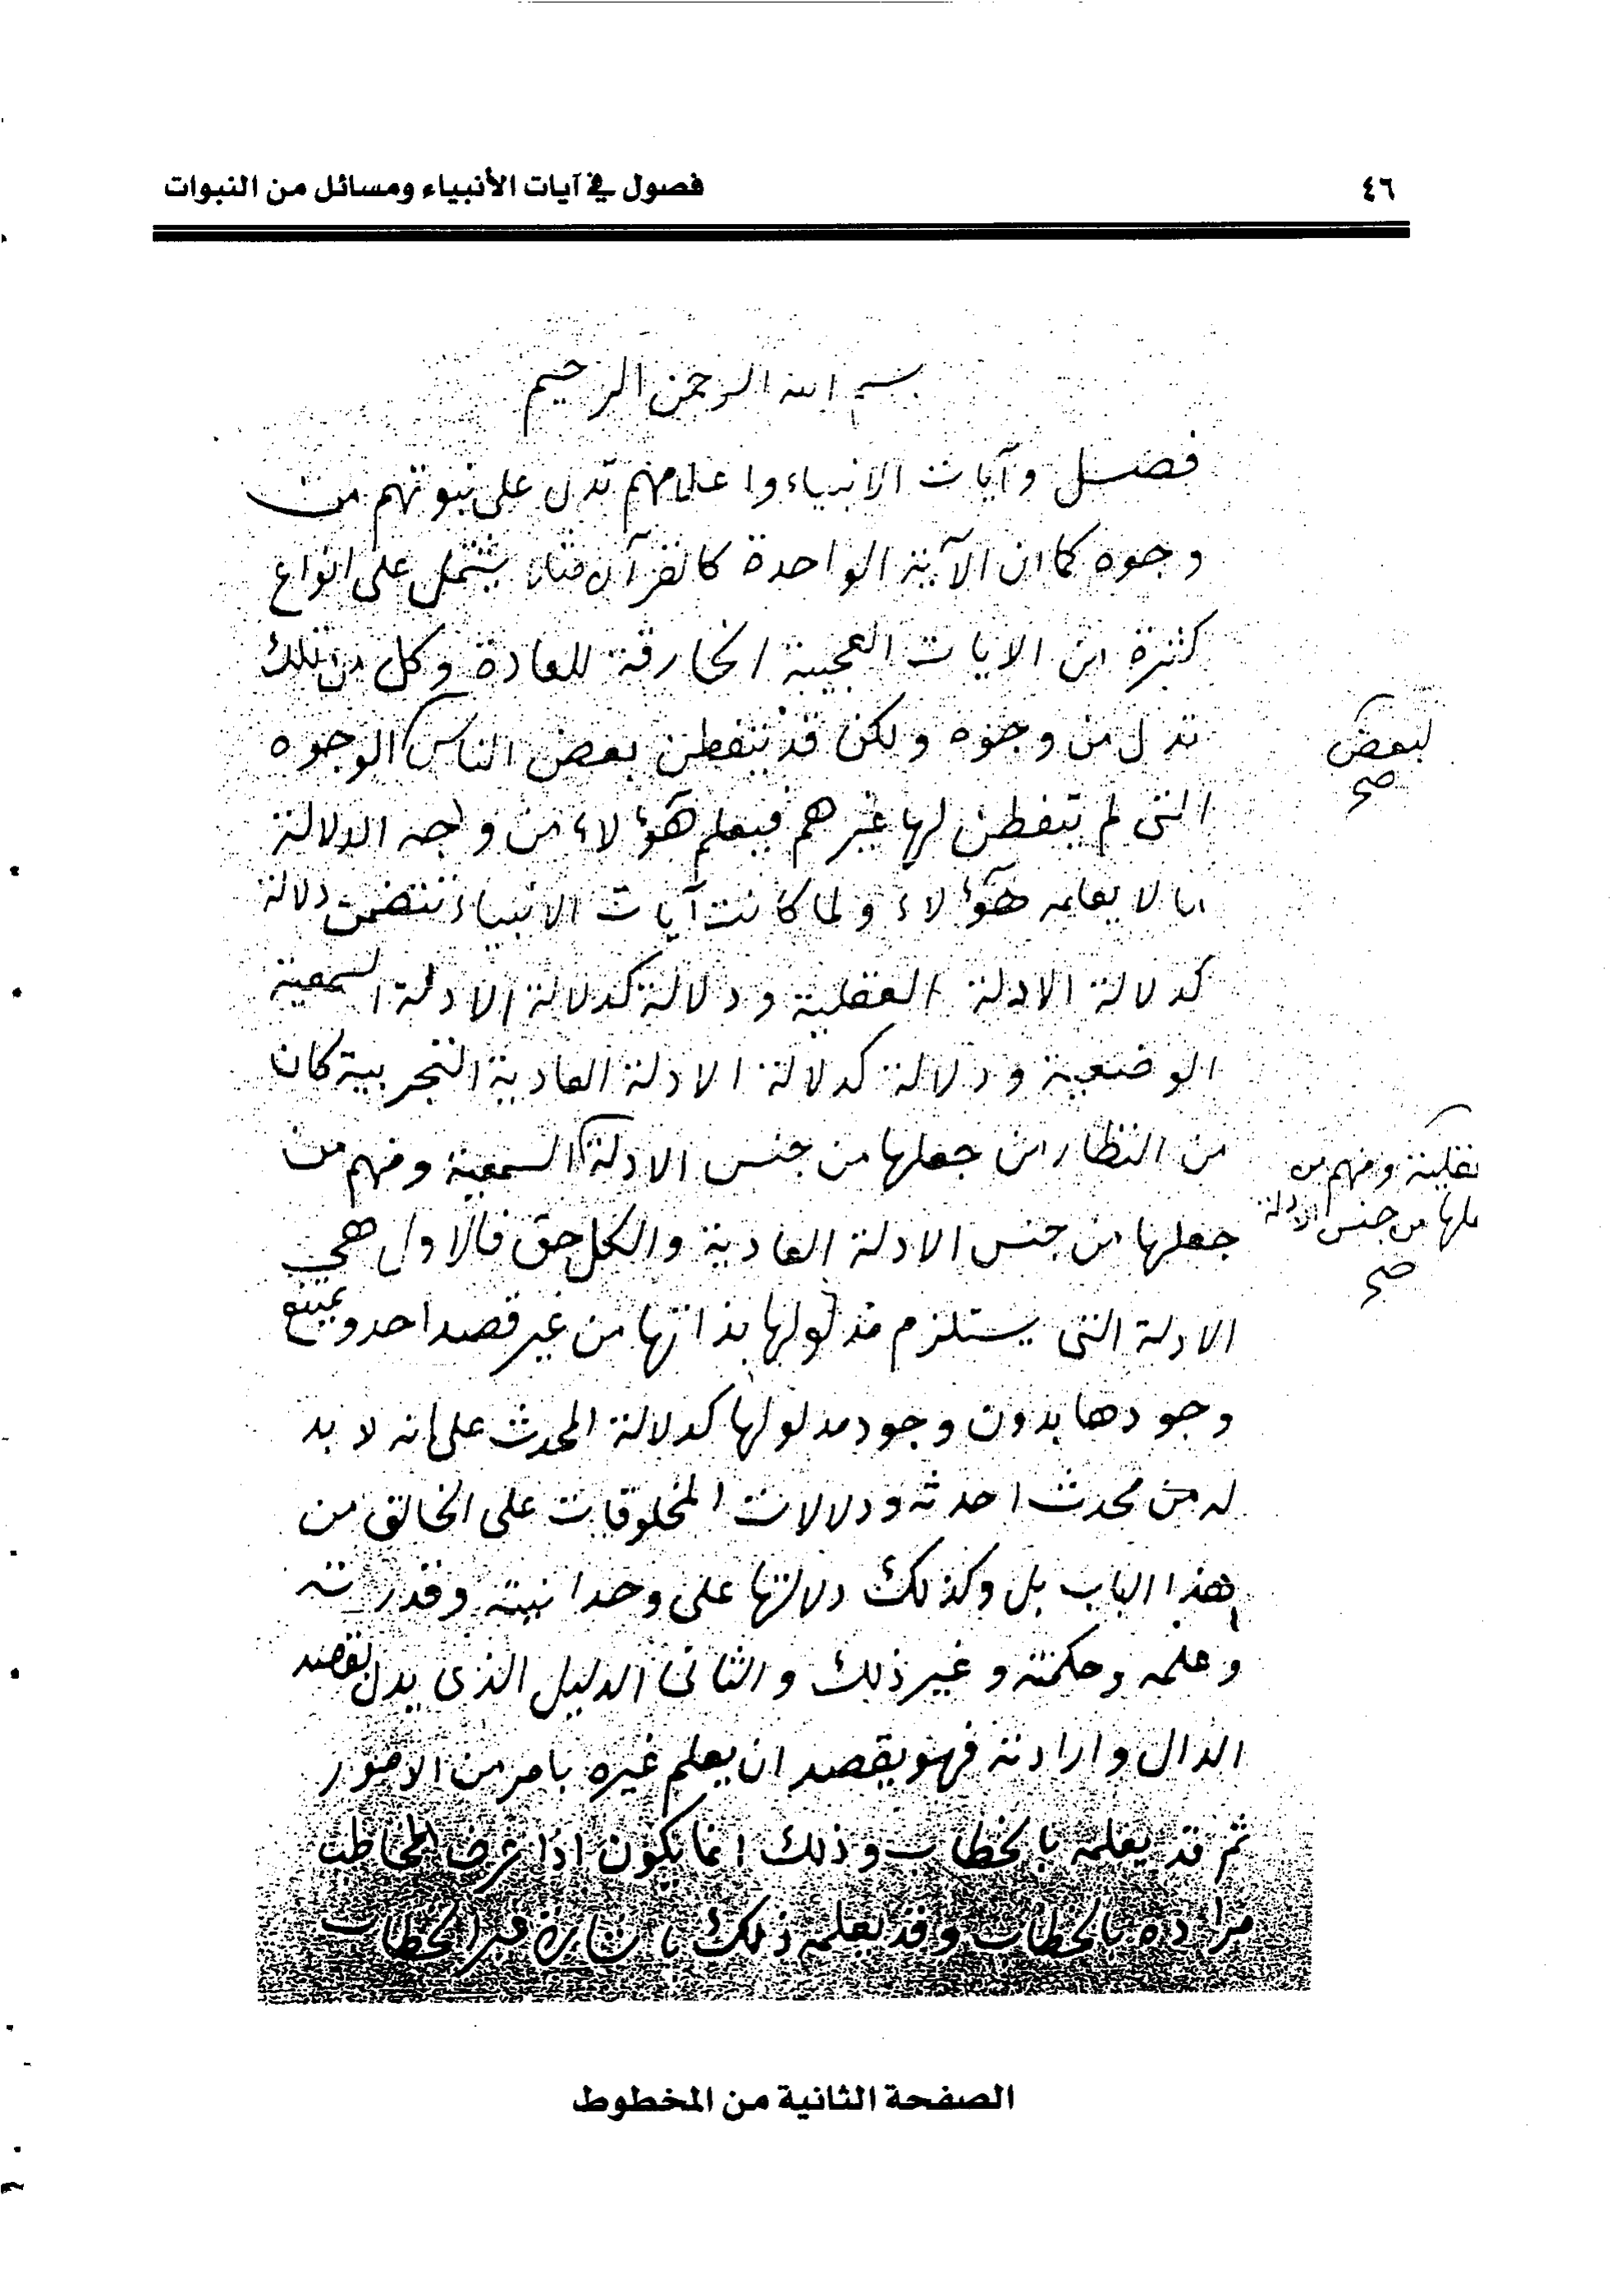 ٤٦
فصول في آيات الأنبياء ومسائل من النبوات
بسم الله الرحمن الرحيم
فصل وآيات الانبياء واعلامهم تدل على نبوتهم من
وجوه كما ان الآية الواحدة كالقرآن مثلا يشتمل على انواع
كثيرة من الايات العجيبة الخارقة للعادة وكل من تلك
تدل من وجوه ولكن قد يتفطن بعض الناس الوجوه
لبعض
صح
التي لم يتفطن لها غيرهم فيعلم هؤلاء من وجه الدلالة
ما لا يعلمه هؤلاء ولما كانت آيات الانبياء تتضمن دلالة
كدلالة الادلة العقلية ودلالة كدلالة الادلة السمعية
الوضعية ودلالة كدلالة الادلة العادية التجربية كان
من النظار من جعلها من جنس الادلة السمعية ومنهم من
عقلية ومنهم من
علها من جنس الادلة
صح
جعلها من جنس الادلة العادية والكل حق فالاول هي
الادلة التي يستلزم مدلولها بذاتها من غير قصد احد ويمتنع
وجودها بدون وجود مدلولها كدلالة المحدث على انه لا بد
له من محدث احدثه ودلالات المخلوقات على الخالق من
هذا الباب بل وكذلك دلالتها على وحدانيته وقدرته
وعلمه وحكمته وغير ذلك والثاني الدليل الذي يدل بقصد
الدال وارادته فهو يقصد ان يعلم غيره بامر من الامور
ثم قد يعلمه بالخطاب وذلك انما يكون اذا عرف المخاطب
مراده بالخطاب وقد يعلمه ذلك باشارة غير الخطاب
الصفحة الثانية من المخطوط